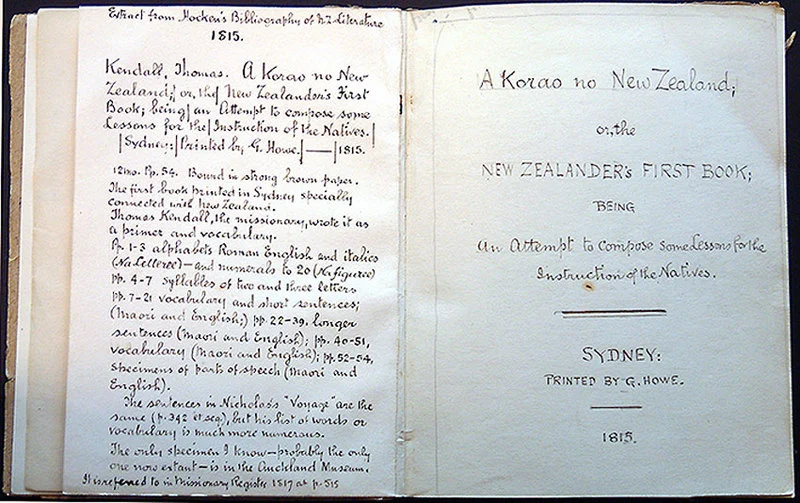 Extract from Hocken's Bibliography of N.Z. Literature
1815.
Kendall, Thomas. A Korao no New
Zealand;| or, the| New Zealander's First
Book; being| an Attempt to compose some
Lessons for the| Instruction of the Natives.|
|Sydney:| Printed by G. Howe.| —— |1815.
12mo. Pp. 54. Bound in strong brown paper.
The first book printed in Sydney specially
connected with New Zealand.
Thomas Kendall, the missionary, wrote it as
a primer and vocabulary.
Pp. 1-3 alphabets Roman English and italics
(Na Letteree) — and numerals to 20 (Na figuree)
pp. 4-7 syllables of two and three letters
pp. 7-21 vocabulary and short sentences;
(Maori and English;) pp. 22-39. longer
sentences (Maori and English); pp. 40-51,
vocabulary (Maori and English); pp. 52-54,
specimens of parts of speech (Maori and
English).
The sentences in Nicholas's "Voyage" are the
same (p. 342 et seq), but his list of words or
vocabulary is much more numerous.
The only specimen I know — probably the only
one now extant — is in the Auckland Museum.
It is referred to in Missionary Register 1817 at p. 515
A Korao no New Zealand;
or, the
NEW ZEALANDER's FIRST BOOK;
BEING
An Attempt to compose some Lessons for the
Instruction of the Natives.
SYDNEY:
PRINTED BY G. HOWE.
1815.